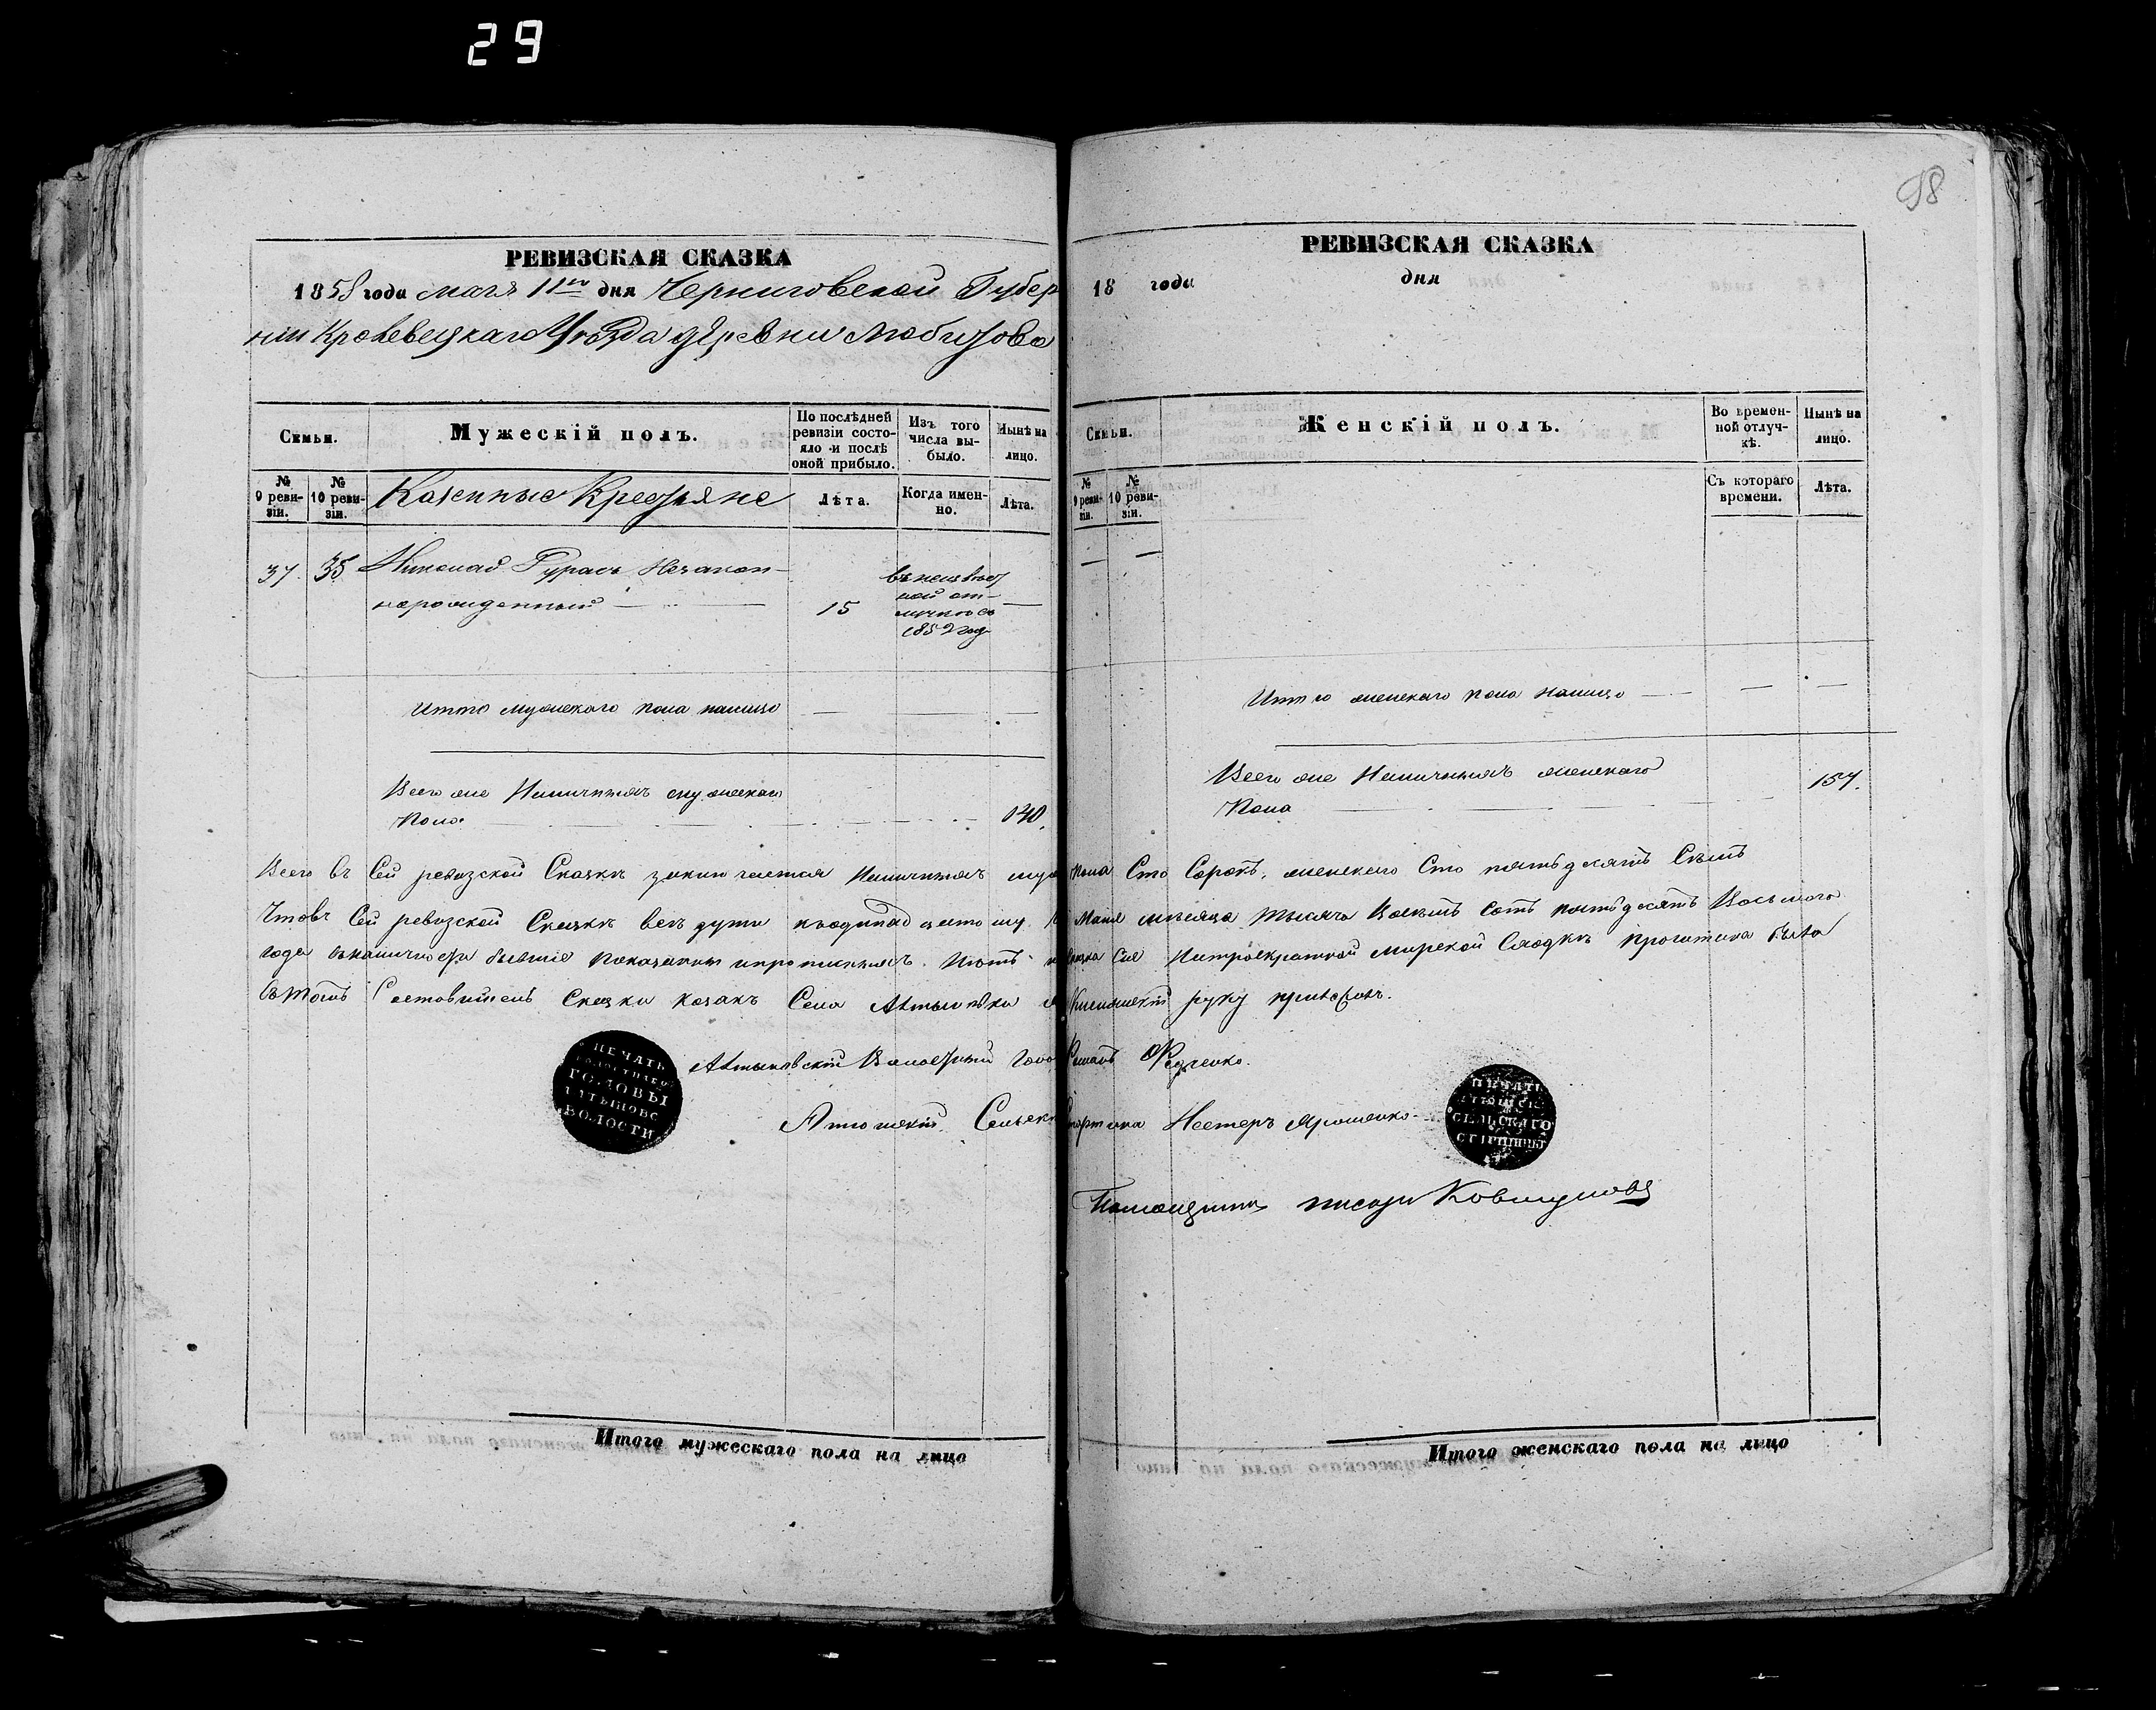 29
98
РЕВИЗСКАЯ СКАЗКА
1858 года мая 11го дня Черниговской Губер
ніи Кролевецкаго Уѣзда деревни Любитова
Семьи.
Мужескій полъ.
По послѣдней ревизіи состояло и послѣ оной прибыло.
Изъ того числа выбыло.
Нынѣ на лицо.
№ 9 ревизіи.
№ 10 ревизіи.
Казенные Крестьяне
Лѣта.
Когда именно.
Лѣта.
37. 35 Николай Гурасъ Незакон-
норожденный 15
въ неизвѣст
ной от-
лучкѣ съ
1852 год
Итого мужскаго пола налицо
Всего же Наличныхъ мужскаго
Пола 140.
РЕВИЗСКАЯ СКАЗКА
18 года дня
Семьи.
Женскій полъ.
Во временной отлучкѣ.
Нынѣ на лицо.
№ 9 ревизіи.
№ 10 ревизіи.
Съ котораго времени.
Лѣта.
Итого женскаго пола налицо
Всего же Наличныхъ женскаго
Пола 157.
Всего въ Сей ревизской Сказкѣ заключается Наличныхъ муж пола Сто Сорокъ, женскаго Сто пятьдесятъ Семь
Чтовъ Сей ревизской Сказкѣ всѣ души Мая мѣсяца тысяча Восемь сотъ пятьдесятъ Восьмого
года въналичности бывшіе показаны Сія Натроекратной мирской Сходкѣ прочитана была
Вътомъ Составитель Сказки козакъ Села Алтыновки руку приложилъ.
Алтыновскій Волостный Голо Романъ Федченко.
ПЕЧАТЬ
ВОЛОСТНАГО
ГОЛОВЫ
АЛТЫНОВС
ВОЛОСТИ
Сельскій Нестеръ Ярошенко
ПЕЧАТЬ
СЕЛЬСКАГО
СТАРШИНЫ
Помощникъ писаря
Итого мужескаго пола на лицо
Итого женскаго пола на лицо